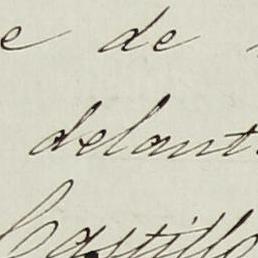 e de
delant
Castillo